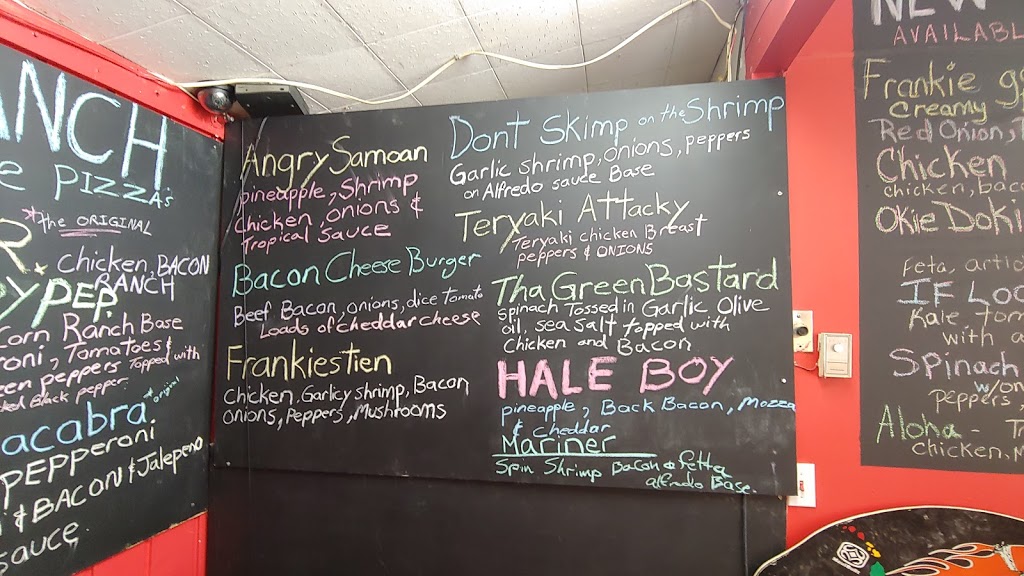 ANCH
e PIZZAs
*the ORIGINAL
R.
chicken, BACON
RANCH
PY PEP.
Corn Ranch Base
roni, Tomatoes &
een peppers Topped with
Black pepper.
acabra *original
PEPPeroni
& BACON & Jalepeno
Sauce.
Angry Samoan
pineapple, Shrimp
Chicken, onions &
Tropical Sauce
Bacon Cheese Burger
Beef Bacon, onions, dice Tomato
Loads of cheddar cheese
Frankiestien
Chicken, Garlicy shrimp, Bacon
onions, Peppers, Mushrooms
Dont Skimp on the Shrimp
Garlic shrimp, onions, peppers
on Alfredo sauce Base
Teryaki Attacky
Teryaki chicken Breast
peppers & ONIONS
Tha Green Bastard
Spinach Tossed in Garlic Olive
oil, sea salt topped with
Chicken and Bacon
HALE BOY
pineapple, Back Bacon, Mozza
& Cheddar
Mariner
Spin Shrimp Bacon & fetta
alfredo Base.
NEW
AVAILABL
Frankie
Creamy
Red Onion,
Chicken
chicken, baco
Okie Doki
Feta, artic
IF Loo
Kale tom
with a
Spinach
w/on
peppers,
Aloha - T
chicken, M